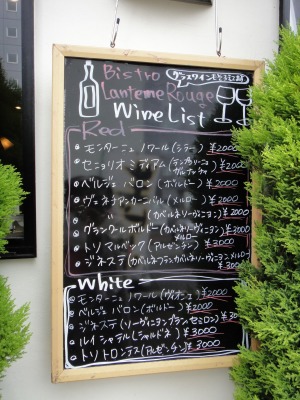 Bistro
グラスワインもございます
Lanterne Rouge
Wine List
Red
モンターニュ ノワール(シラー) ¥2000
セニョリオ ミディアム(テンプラリーニョ ¥2000
ガルナッチャ
ベルジュ バロン(ボルドー) ¥2000
ヴェネチアンカーニバル(メルロー) ¥2000
〃 〃 (カベルネソーヴィニヨン) ¥2000
グランワールボルドー(カベルネソーヴィニヨン) ¥3000
メルロー
トリノ マルベック(アルゼンチン) ¥3000
ジネステ(カベルネフランカベルネソーヴィニヨンメルロー
¥3000
White
モンターニュ ノワール(ヴィオニエ) ¥2000
ベルジュ バロン(ボルドー) ¥2000
ジネステ(ソーヴィニヨンブラン,セミヨン) ¥3000
ルイ シャテル(シャルドネ) ¥3000
トリノ トロンテス(アルゼンチン) ¥3000